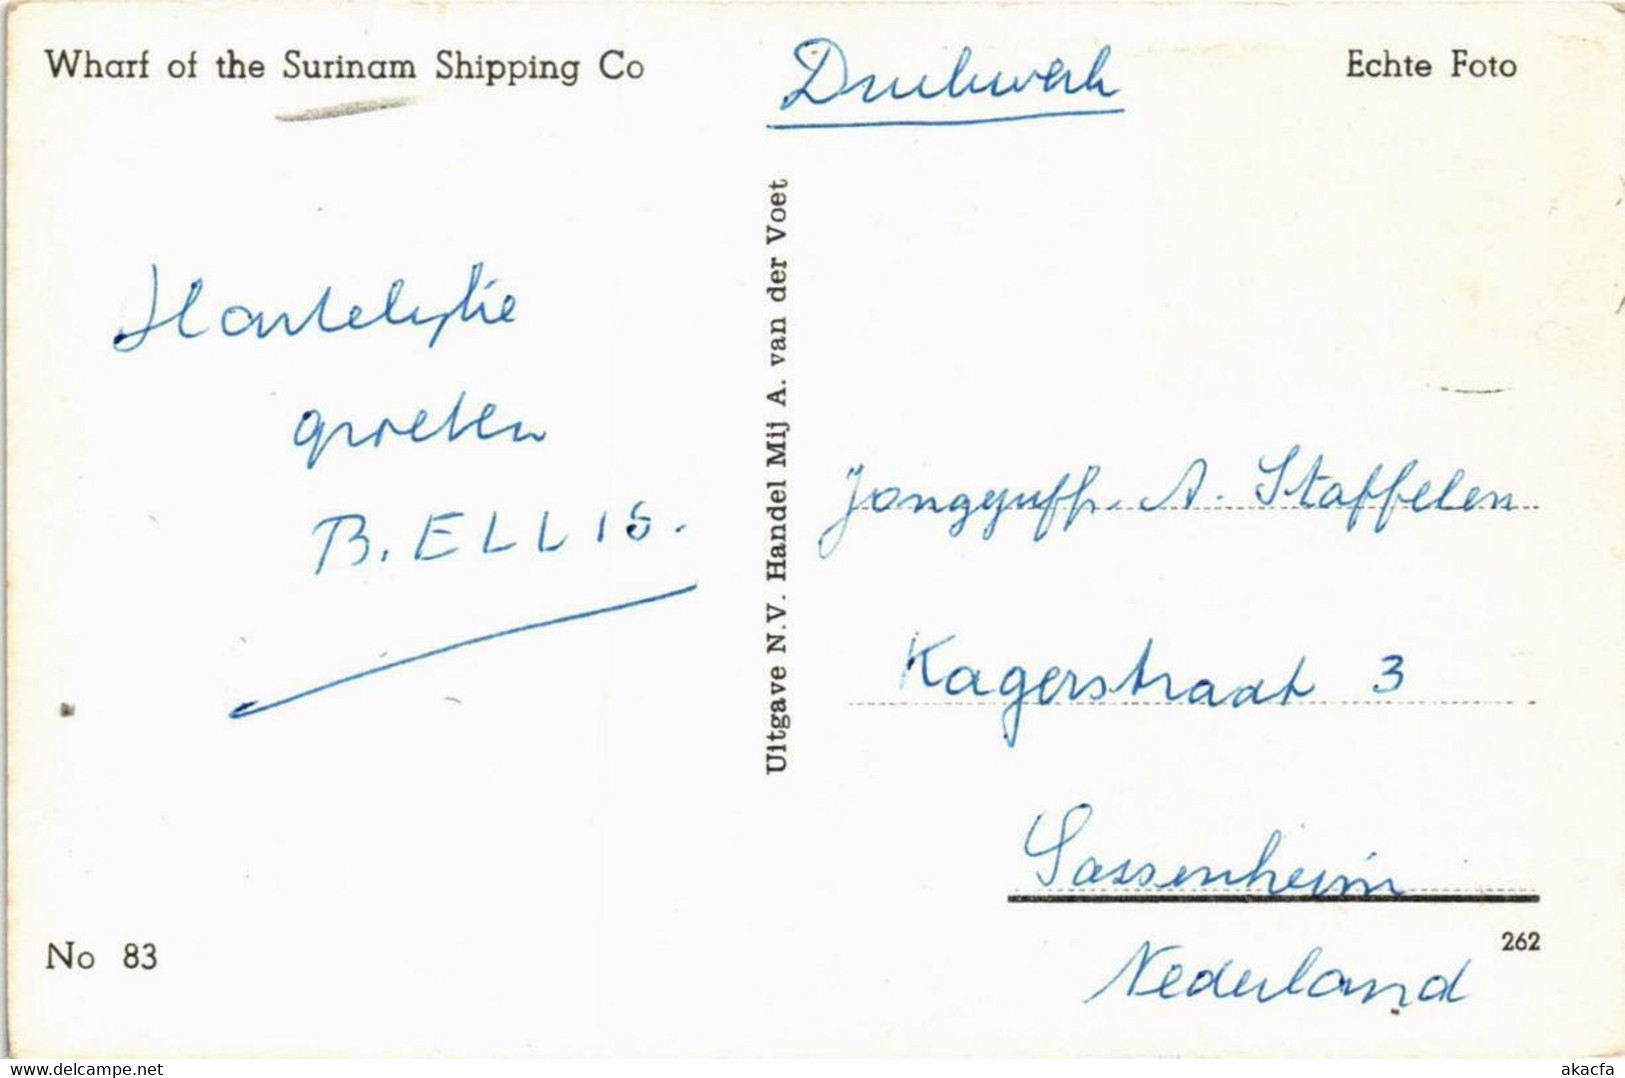 Wharf of the Surinam Shipping Co
Drukwerk
Echte Foto
Hartelijke
groeten
B. ELLIS.
Uitgave N.V. Handel Mij A. van der Voet
A. Staffelen
Kagerstraat 3
Sassenheim
Nederland
No 83
262
www.delcampe.net
akacfa